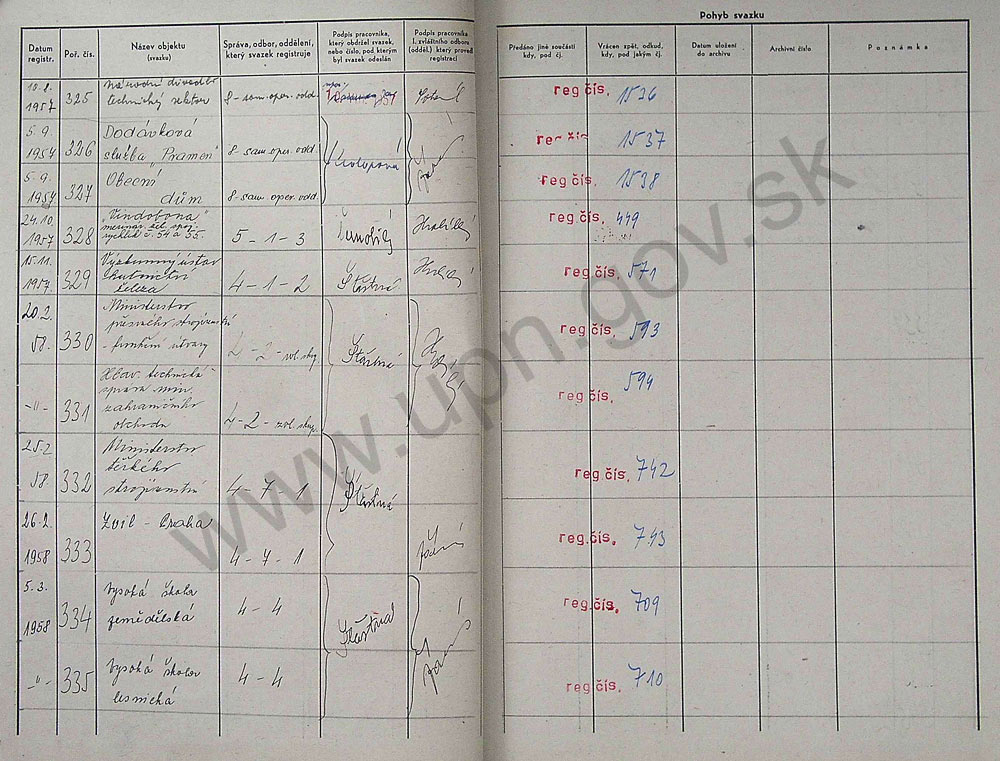 Pohyb svazku
Datum registr.
Poř. čís.
Název objektu (svazku)
Správa, odbor, oddělení, který svazek registruje
Podpis pracovníka, který obdržel svazek, nebo číslo, pod kterým byl svazek odeslán
Podpis pracovníka I. zvláštního odboru (odděl.) který provedl registraci
Předáno jiné součásti kdy, pod čj.
Vrácen zpět, odkud, kdy, pod jakým čj.
Datum uložení do archivu
Archivní číslo
Poznámka
1957 325 technický sektor 8 - sam. oper. odd. reg. čís. 1536
5.9. Dodávková
1957 326 služba "Pramen" 8 sam. oper. odd. reg. čís. 1537
5.9. Obecní
1957 327 dům 8- sam. oper. odd. reg. čís. 1538
24.10. "Vindobona"
1957 328 rychlík č. 54 a 55. 5 - 1 - 3 reg. čís. 449
15.11. Výzkumný ústav
1957 329 železa 4 - 1 - 2 Šťastná reg. čís. 571
20.2. Ministerstvo
přesného strojírenství
58. 330 útvary 4 - 2 - zvl. skup. Šťastná reg. čís. 593
Hlav. technická
správa min.
-"- 331 zahraničního
obchodu 4 - 2 - zvl. skup. reg. čís. 594
25.2. Ministerstvo
těžkého
58. 332 strojírenství 4 - 7 - 1 Šťastná reg. čís. 742
26.2. Praha
1958 333 4 - 7 - 1 reg. čís. 743
5.3. Vysoká škola 4 - 4
1958 334 zemědělská Šťastná reg. čís. 709
-"- 335 Vysoká škola 4 - 4
lesnická reg. čís. 710
www.upn.gov.sk